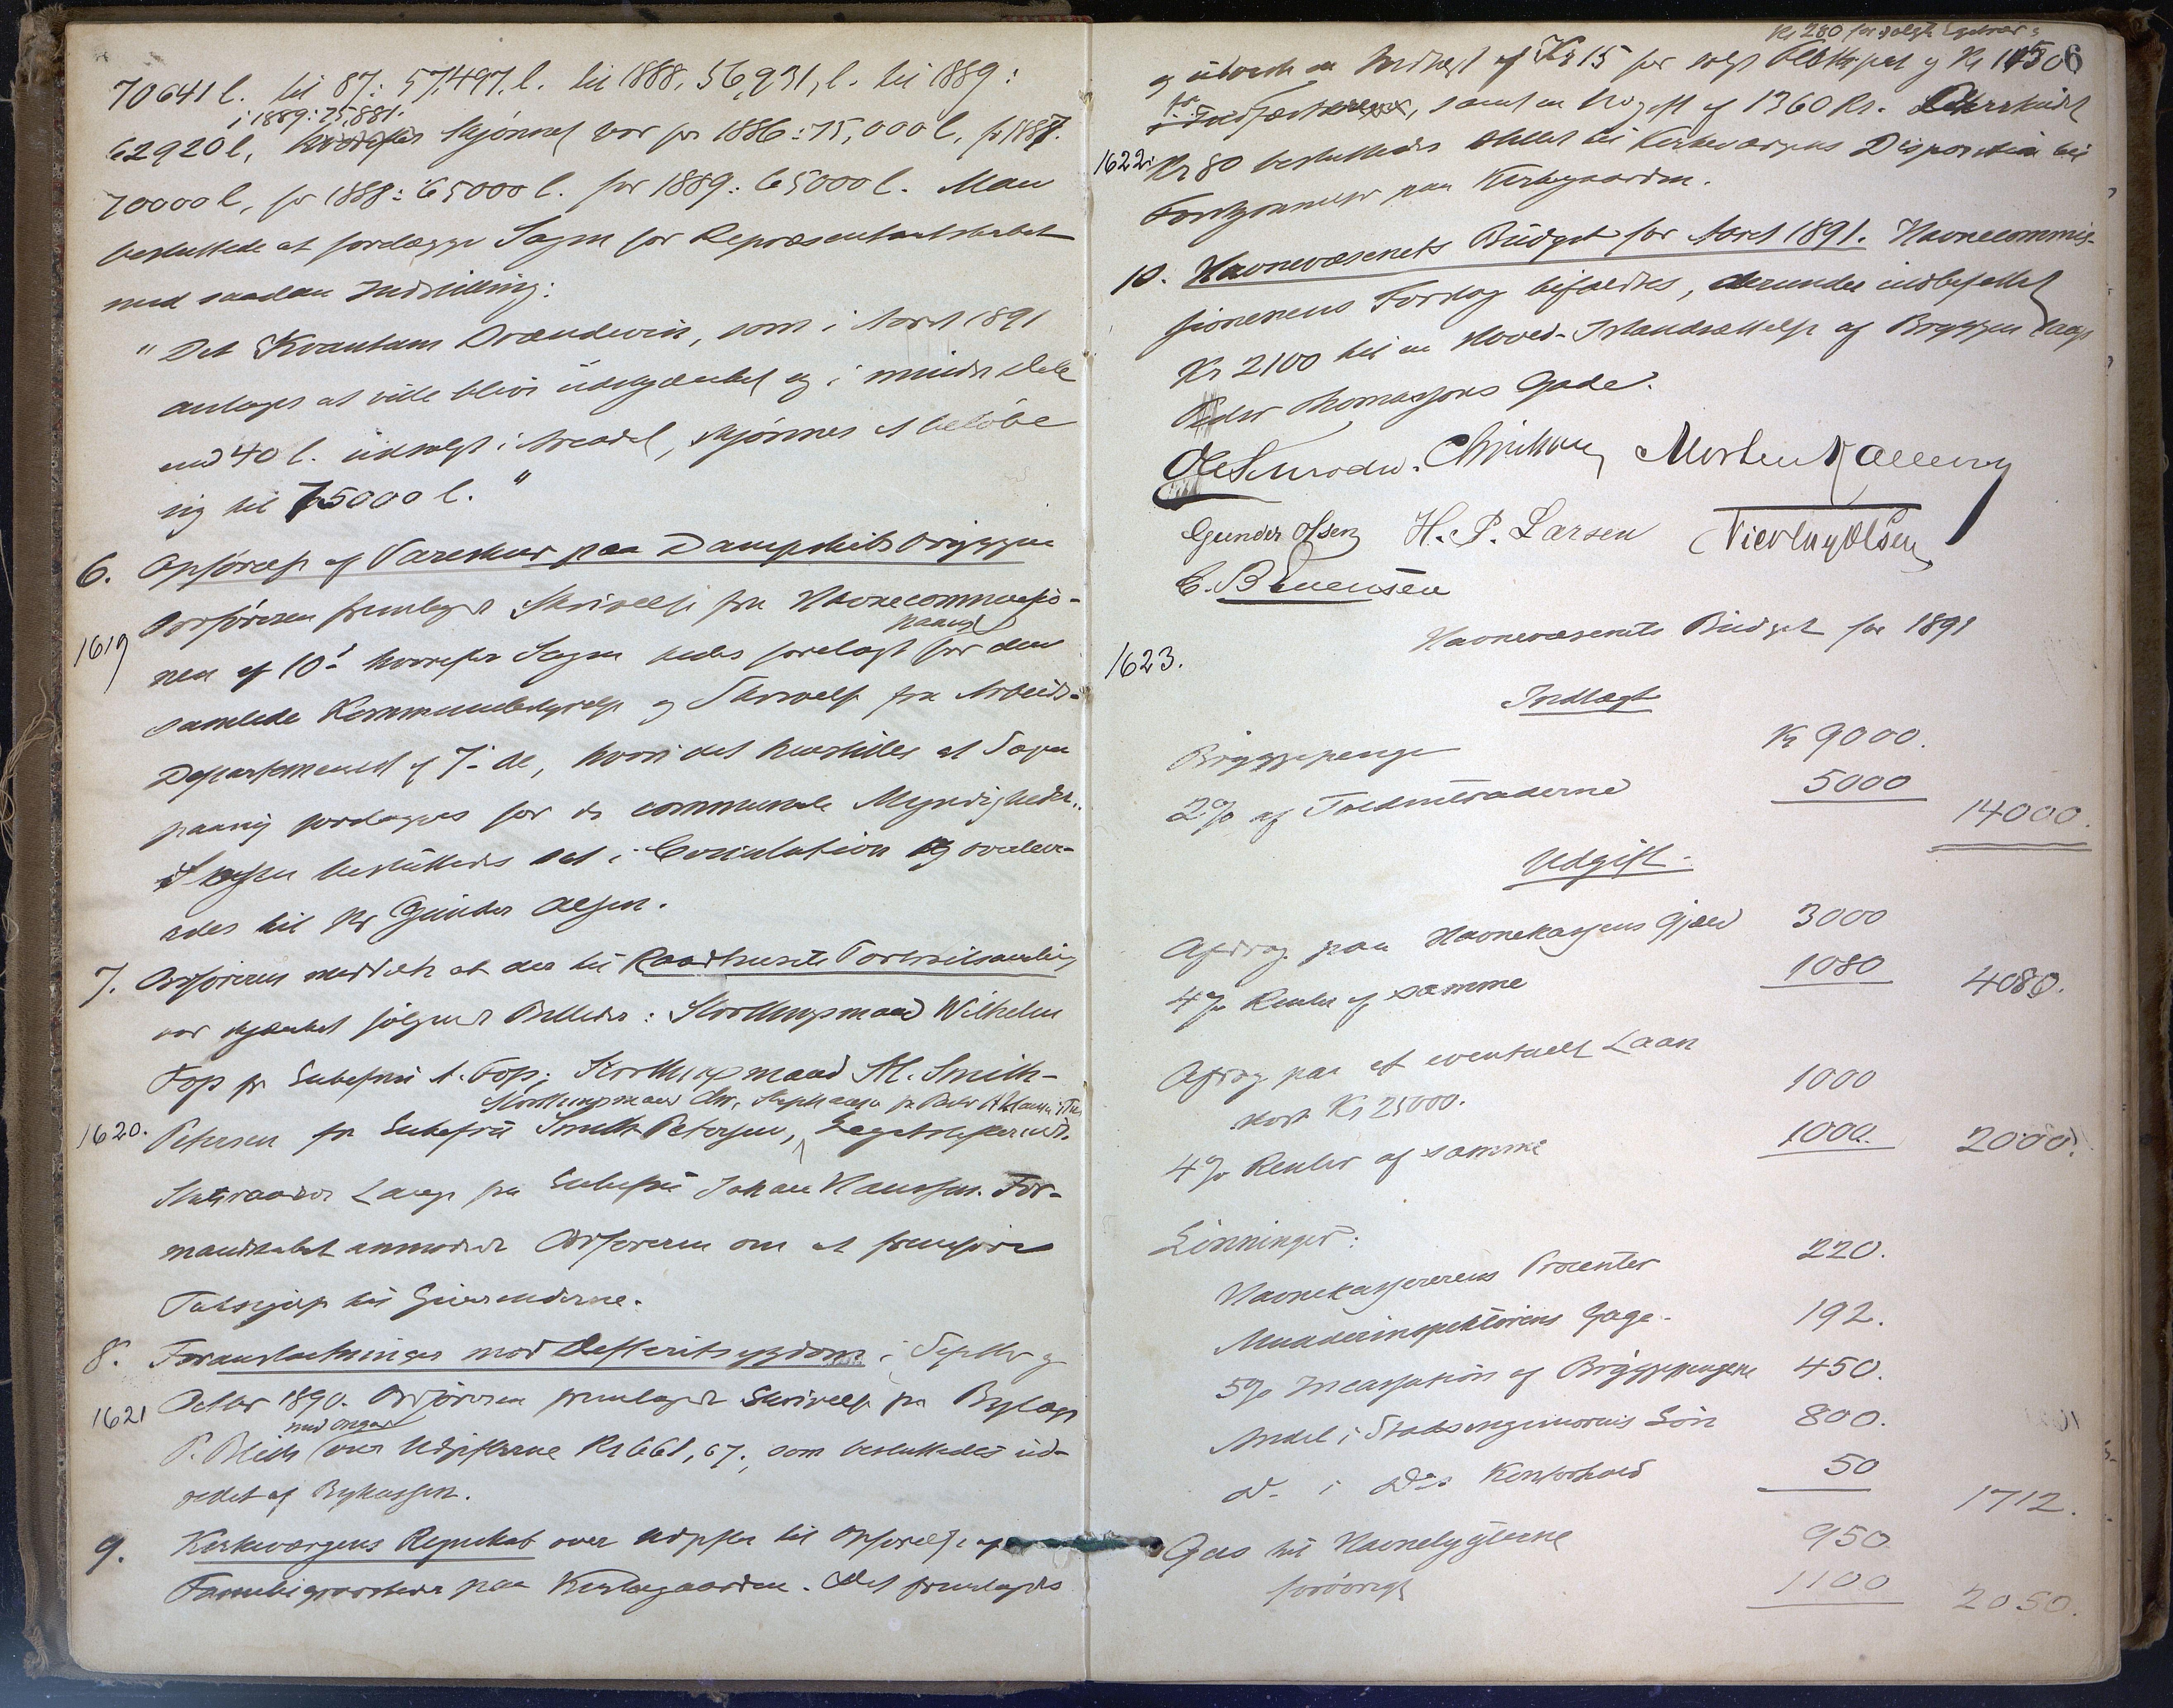 70641 l. til 87: 57,497, l. til 1888, 56,931, l. til 1889:
i 1889: 75,881.
62920 l, Skjønnet var for 1886: 75,000 l, for 1887.
70000 l, for 1888: 65000 l. for 1889: 65000 l. Man
besluttede at forelægge Sagen for Repræsentantskabet
med saadan Indstilling:
"Det Kvantum Brændevin, som i Aaret 1891
antages at ville blive udskjænket og i mindre Dele
end 40 l. udsolgt i Arendal, skjønnes at beløbe
sig til 75000 l."
6. Opførelse af Vareskur paa Dampskibsbryggen
Ordføreren fremlagde Skrivelse fra Havnecommissio-
1619
nen af 10de hvorefter Sagen bedes forelagt paanyt for den
samlede Kommunebestyrelse og Skrivelse fra Arbeids-
Departementet af 7de ds, hvori det henstilles at Sagen
paany foredrages for de communale Myndigheder.
Sagen besluttedes sat i Circulation og overlever-
edes til Hr Gunder Olsen.
7. Ordføreren meddelte at der til Raadhusets Portraitsamling
var skjænket følgende Billeder: Storthingsmand Wilhelm
Foss fra Enkefru A. Foss; Storthingsmand M. Smith-
Storthingsmand Chr. Stephansen fra
1620. Petersen fra Enkefru Smith Petersen,
Statsraad Lange fra Enkefru Johan Hanssen. For-
mandskabet anmodede Ordføreren om at fremføre
Taksigelse til Giverinderne.
8. Foranstaltninger mod Defteritsygdom i Septbr og
1621 Octbr 1890. Ordføreren fremlagde Skrivelse fra Bylæge
P. Blich med Opgave over Udgifterne Kr 661,67, som besluttedes ud-
redet af Bykassen.
9. Kirkeværgens Regnskab over Udgifter til Opførelse af
Familiegravsteder paa Kirkegaarden. Det fremlagdes
Kr 280 for solgte
6
og udviste en Indtægt af Kr 15 for solgt og Kr 1150
for Fæstes, samt en Udgift af 1360 Kr. Overskudet
1622. Kr 80 besluttedes stillet til Kirkeværgens Disposition til
Forskjønnelse paa Kirkegaarden.
10. Havnevæsenets Budget for Aaret 1891. Havnecommis-
sionens Forslag bifaldtes, derunder indbefattet
Kr 2100 til en Hoved-Istandsættelse af Bryggen langs
Peder Thomassons Gade.
Morten Kallevig
Gunder Olsen H. P. Larsen Nicolay Olsen
C. B Evensen
1623. Havnevæsenets Budget for 1891
Indtægt
Bryggepenge Kr 9000.
2% af Toldintraderne 5000 14000.
Udgift.
Afdrag paa Havnekassens Gjæld 3000
4% Renter af samme 1080 4080.
Afdrag paa et eventuelt Laan
stort Kr 25000. 1000
4% Renter af samme 1000. 2000.
Lønninger:
Havnekassererens Procenter 220.
Mudderinspektørens Gage. 192.
5% Incassation af Bryggepengene 450.
Andel i Stadsingeniørens Løn 800.
Do. i Ds. Kontorhold 50
1712.
Gas til Havnelygterne 950
forøvrigt 1100 2050.